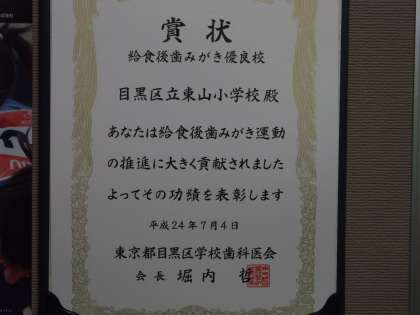 賞状
給食後歯みがき優良校
目黒区立東山小学校殿
あなたは給食後歯みがき運動
の推進に大きく貢献されました
よってその功績を表彰します
平成24年7月4日
東京都目黒区学校歯科医会
会長 堀内 哲